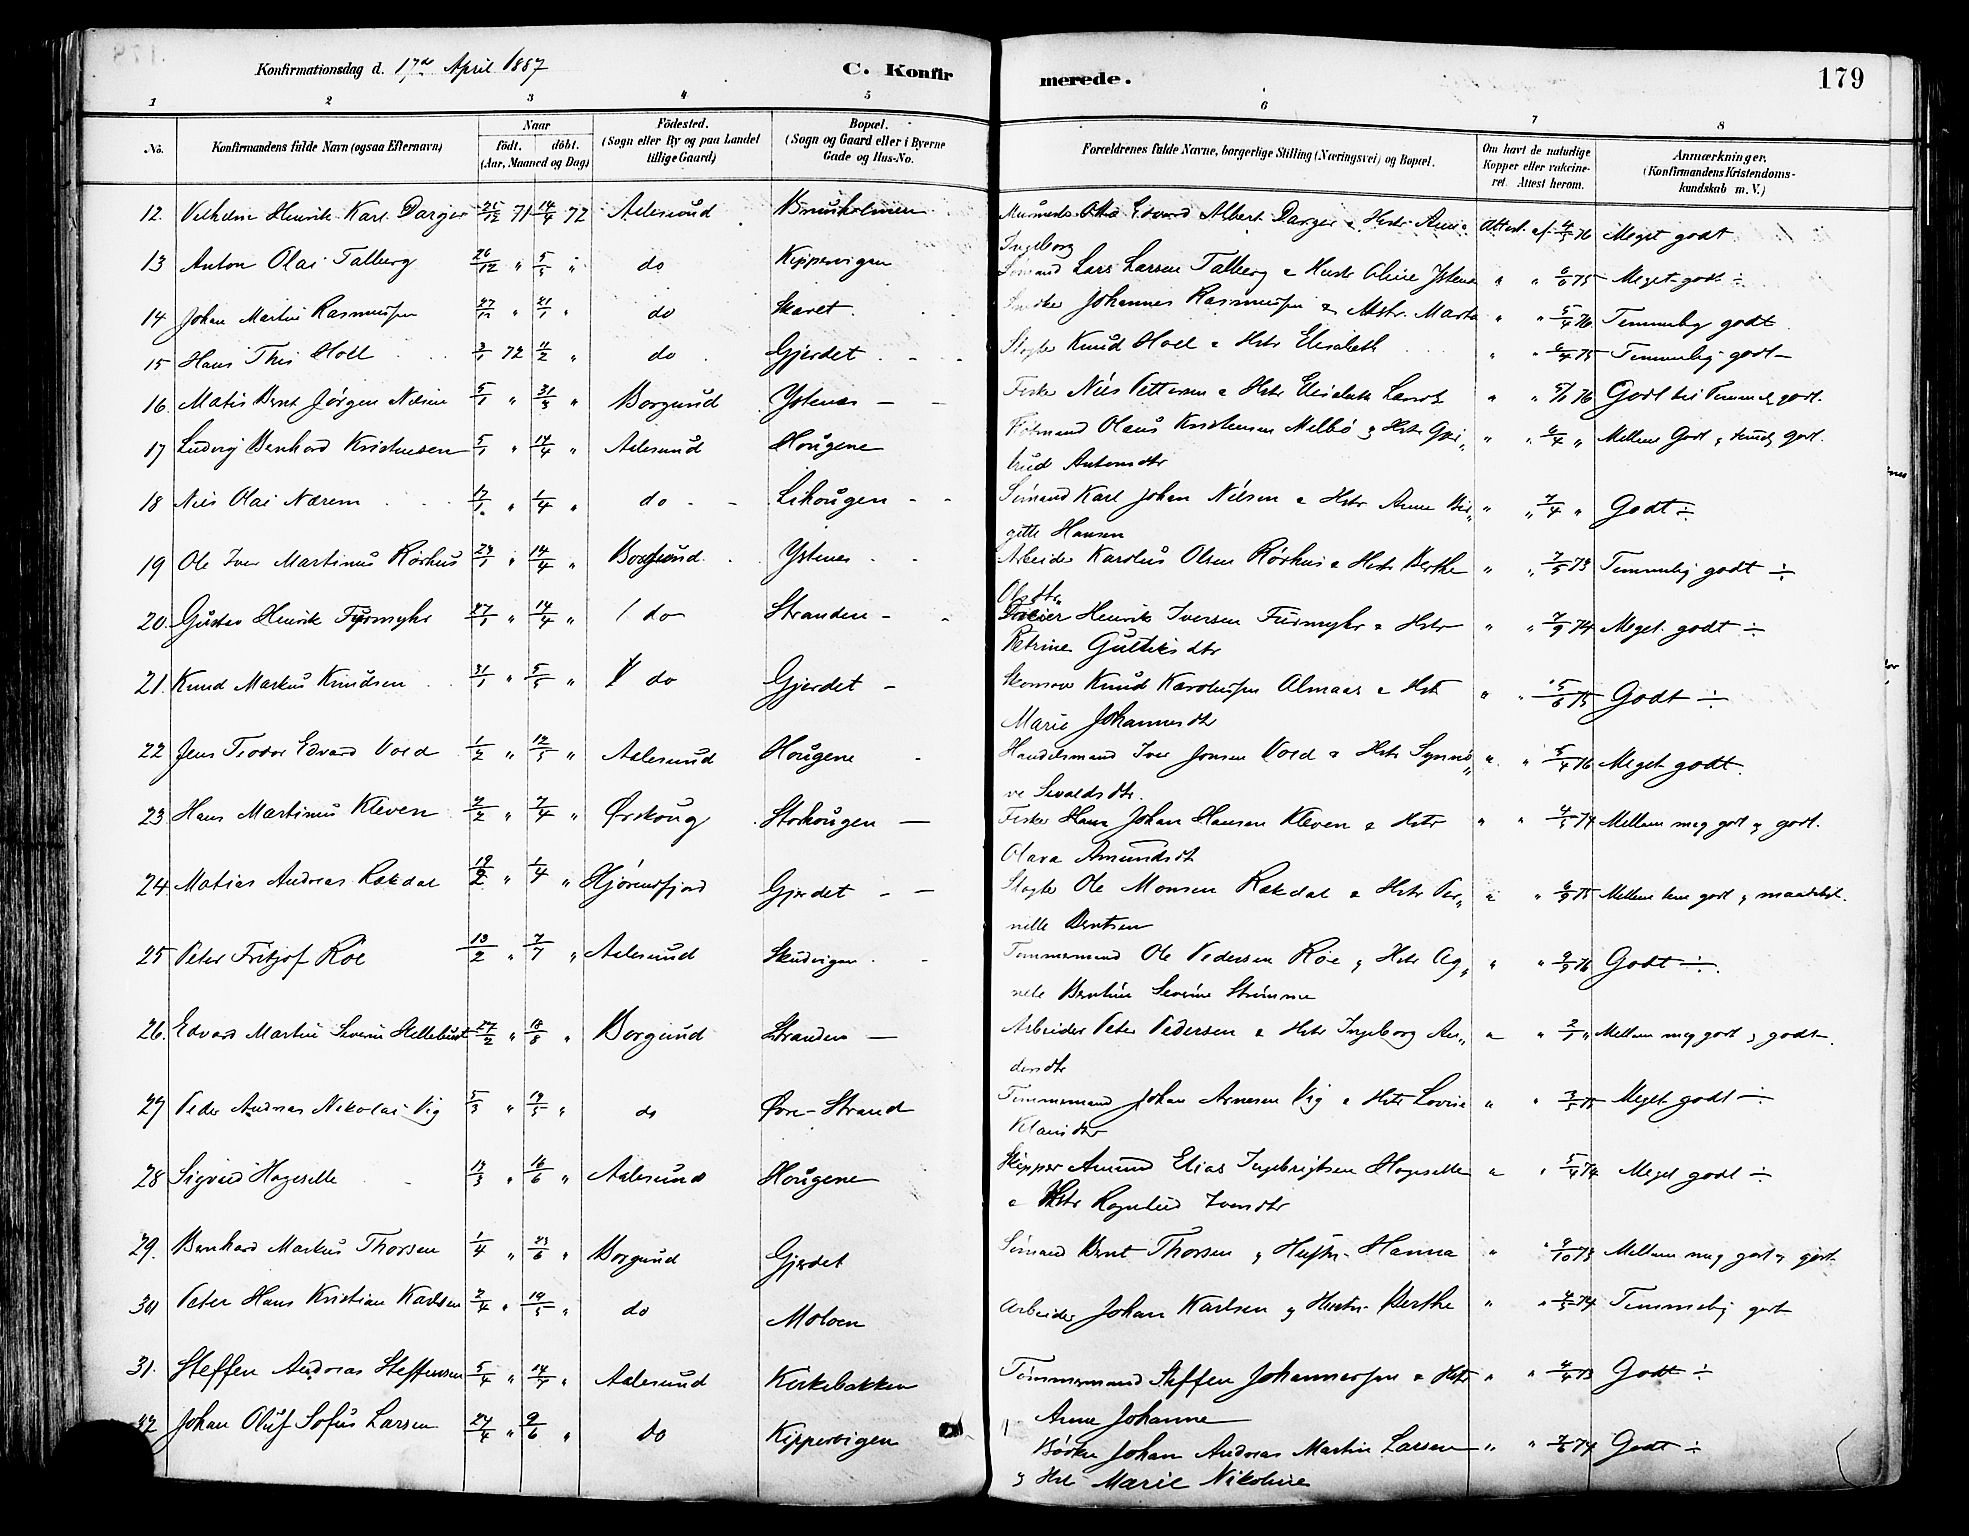 Konfirmationsdag d. 17de April 1887
C. Konfirmerede.
179
1 2 3 4 5 6 7 8
No. Konfirmandens fulde Navn (ogsaa Efternavn) Naar født. døbt. (Aar, Maaned og Dag) Fødested. (Sogn eller By og paa Landet tillige Gaard) Bopæl. (Sogn og Gaard eller i Byerne Gade og Hus-No. Forældrenes fulde Navne, borgerlige Stilling (Næringsvei) og Bopæl. Om havt de naturlige Kopper eller vakcineret. Attest herom. Anmærkninger. (Konfirmandens Kristendomskundskab m. V.)
12. Vilhelm Henrik Karl Darger 21/12 71 14/4 72 Aalesund Bruusholmen Edvard Albert Darger & Hstr Anne Attest af 76 Meget godt
Ingeborg
13 Anton Olai Talberg 26/12 " 5/5 " do Kippervigen Sömand Lars Larsen Talberg & Hustr Oline Ystenes " " 6/6 75 Meget godt ÷
14 Johan Martin Rasmussen 27/12 " 21/1 " do Skaret Johannes Rasmussen & Hstr. Marta " " 5/4 76 Temmelig godt
15 Hans This Holl 3/1 72 11/2 " do Gjerdet Knud Holl & Hstr Elisabeth " " 6/4 75 Temmelig godt
16. Matis Bernt Jørgen Nilsen 5/1 " 31/3 " Borgund Ystenes Fisker Nils Pettersen & Hstr Elisabeth " " 76 Godt til Temmelig godt.
17 Ludvig Bernhard Kristensen 5/1 " 14/4 " Aalesund Hougene Olaus Kristensen Melbö & Hstr " " 6/4 " Mellem Godt & temlig godt.
Antonsdtr
18 Nils Olai Nærem 17/1 " 1/4 " do Lihougen Sömand Karl Johan Nilsen & Hstr Anne Bir„ " " 7/4 " Godt ÷
gitte Hansen
19 Ole Iver Martinus Rørhus 23/1 " 14/4 " Borgund Ystenes Arbeider Karolus Olsen Rørhus & Hstr Berthe " " 7/5 73 Temmelig godt ÷
Olsdtr
20. Gustav Henrik Furmyhr 27/1 " 14/4 " do Stranden Henrik Iversen Furmyhr & Hstr " " 7/9 74 Meget godt ÷
Petrine Gulliksdtr
21. Knud Markus Knudsen 31/1 " 5/5 " do Gjerdet Knud Karolussen Almaas & Hstr " " 5/6 75 Godt ÷
Marie Johannesdtr
22 Jens Teodor Edvard Vold 1/2 " 12/5 " Aalesund Hougene Handelsmand Iver Jonsen Vold & Hstr Synnö„ " " 5/4 76 Meget godt.
ve Sivaldsdtr.
23. Hans Martinus Kleven 2/2 " 7/4 " Ørskoug Storhougen Fisker Hans Johan Hansen Kleven & Hstr " " 4/5 74 Mellem meg godt & godt.
Olava Amundsdt
24 Matias Andreas Rakdal 19/2 " 1/4 " Hjørendfjord Gjerdet Ole Monsen Rakdal & Hstr Per„ " " 6/9 75 Mellem tem godt & maadeligt.
nille Berntsen
25 Peter Fritjof Röe 13/2 " 7/7 " Aalesund Skudvigen Tømmermand Ole Pedersen Röe & Hstr Ag„ " " 9/9 76 Godt ÷
nete Bentine Severine Strömme
26. Edvard Martin Severin Hellebust 27/2 " 18/8 " Borgund Stranden Arbeider Peter Pedersen & Hstr Ingeborg An„ " " " Mellem meg godt & godt
dersdtr
27 Peder Andreas Nikolai Vig 5/3 " 19/5 " do Øvre-Strand Tømmermand Johan Arnesen Vig & Hstr Lovise " " 3/5 75 Meget godt ÷
Klausdtr
28 Sigvard Hageselle 13/3 " 16/6 " Aalesund Hougene Skipper Amund Elias Ingebrigtsen Hageselle " " 5/4 74 Meget godt ÷
& Hstr Ragnhild Iversdtr
29. Bernhard Markus Thorsen 1/4 " 23/6 " Borgund Gjerdet Sömand Bernt Thorsen & Hustr. Hanna " " 9/10 73 Mellem meg godt & godt
30 Peter Hans Kristian Karlsen 2/4 " 19/5 " do Moloen Arbeider Johan Karlsen & Hustr. Berthe " " 4/5 74 Temmelig godt
31. Steffen Andreas Steffensen 5/4 " 14/7 " Aalesund Kirkebakken Tømmermand Steffen Johannessen & Hstr " " 4/4 73 Godt ÷
Anne Johanne
32 Johan Oluf Sofus Larsen 24/4 " 9/6 " do Kippervigen Bödker Johan Andreas Martin Larsen " " 74 Godt ÷
& Hst Marie Nikoline